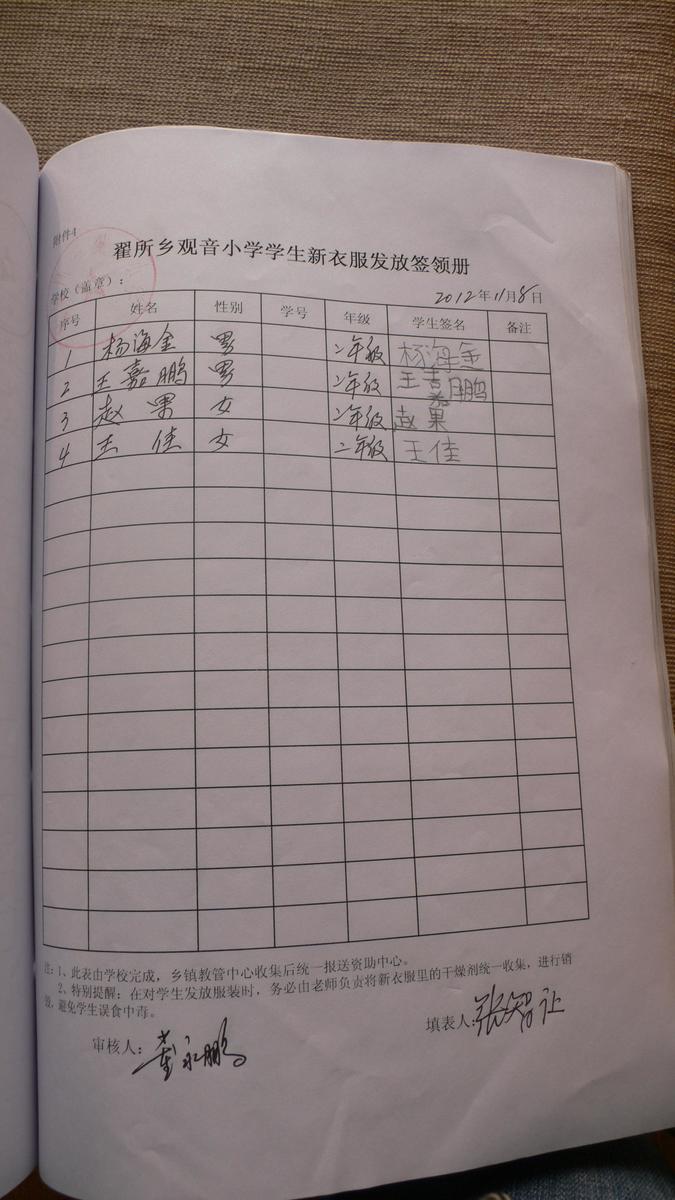 附件4
翟所乡观音小学学生新衣服发放签领册
学校（盖章）：
2012年11月8日
序号 姓名 性别 学号 年级 学生签名 备注
1 杨海金 男 二年级 杨海金
2 王嘉鹏 男 二年级 王嘉鹏
3 赵果 女 二年级 赵果
4 王佳 女 二年级 王佳
注：1、此表由学校完成，乡镇教管中心收集后统一报送资助中心。
2、特别提醒：在对学生发放服装时，务必由老师负责将新衣服里的干燥剂统一收集，进行销
毁，避免学生误食中毒。
填表人：张智让
审核人：董永鹏